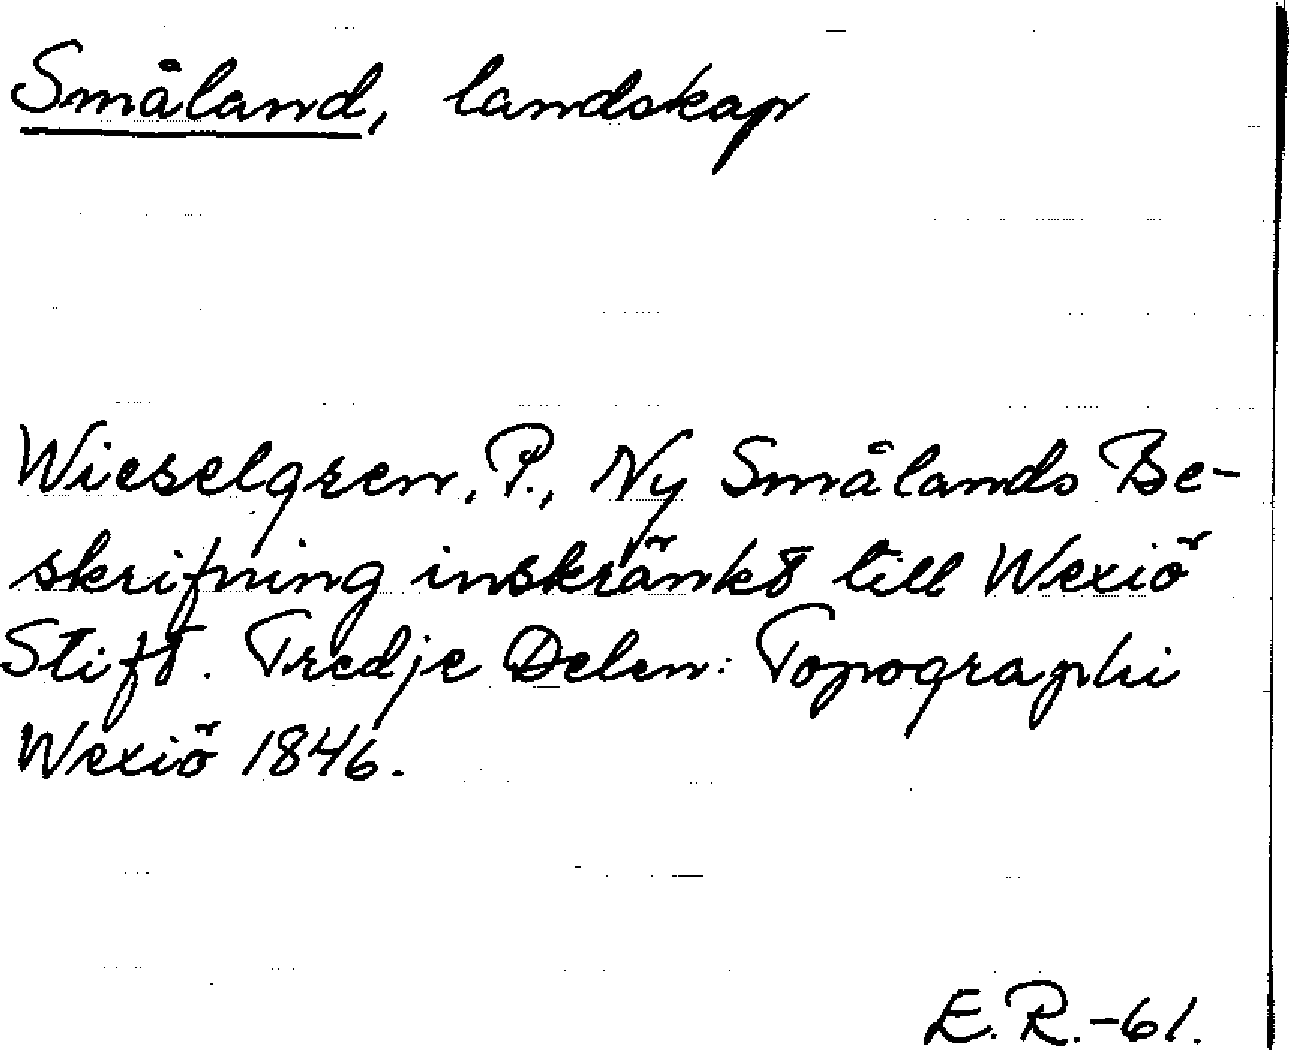 Småland, landskap
Wieselgren, P., Ny Smålands Be-
skrifning inskränkt till Wexiö
Stift. Tredje Delen: Topographi
Wexiö 1846.
E.R.-61.